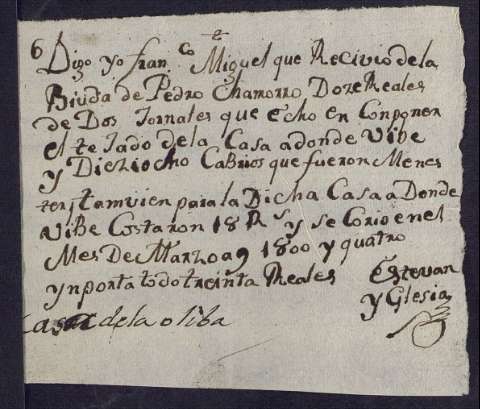 6 Digo yo Fran.co Miguel que Recivio de la
Biuda de Pedro Chamorro Doze Reales
de Dos Jornales que echo en Conponer
el te Jado de la Casa a donde Vibe
y Dieziocho Cabrios que fueron Menes
ter, tamvien para la Dicha Casa a Donde
vibe Costaron 18 Rs y se Corio en el
Mes De Marzo a 9 1800 y quatro
ynporta todo treinta Reales Estevan
y Glesia
Casa de la oliba